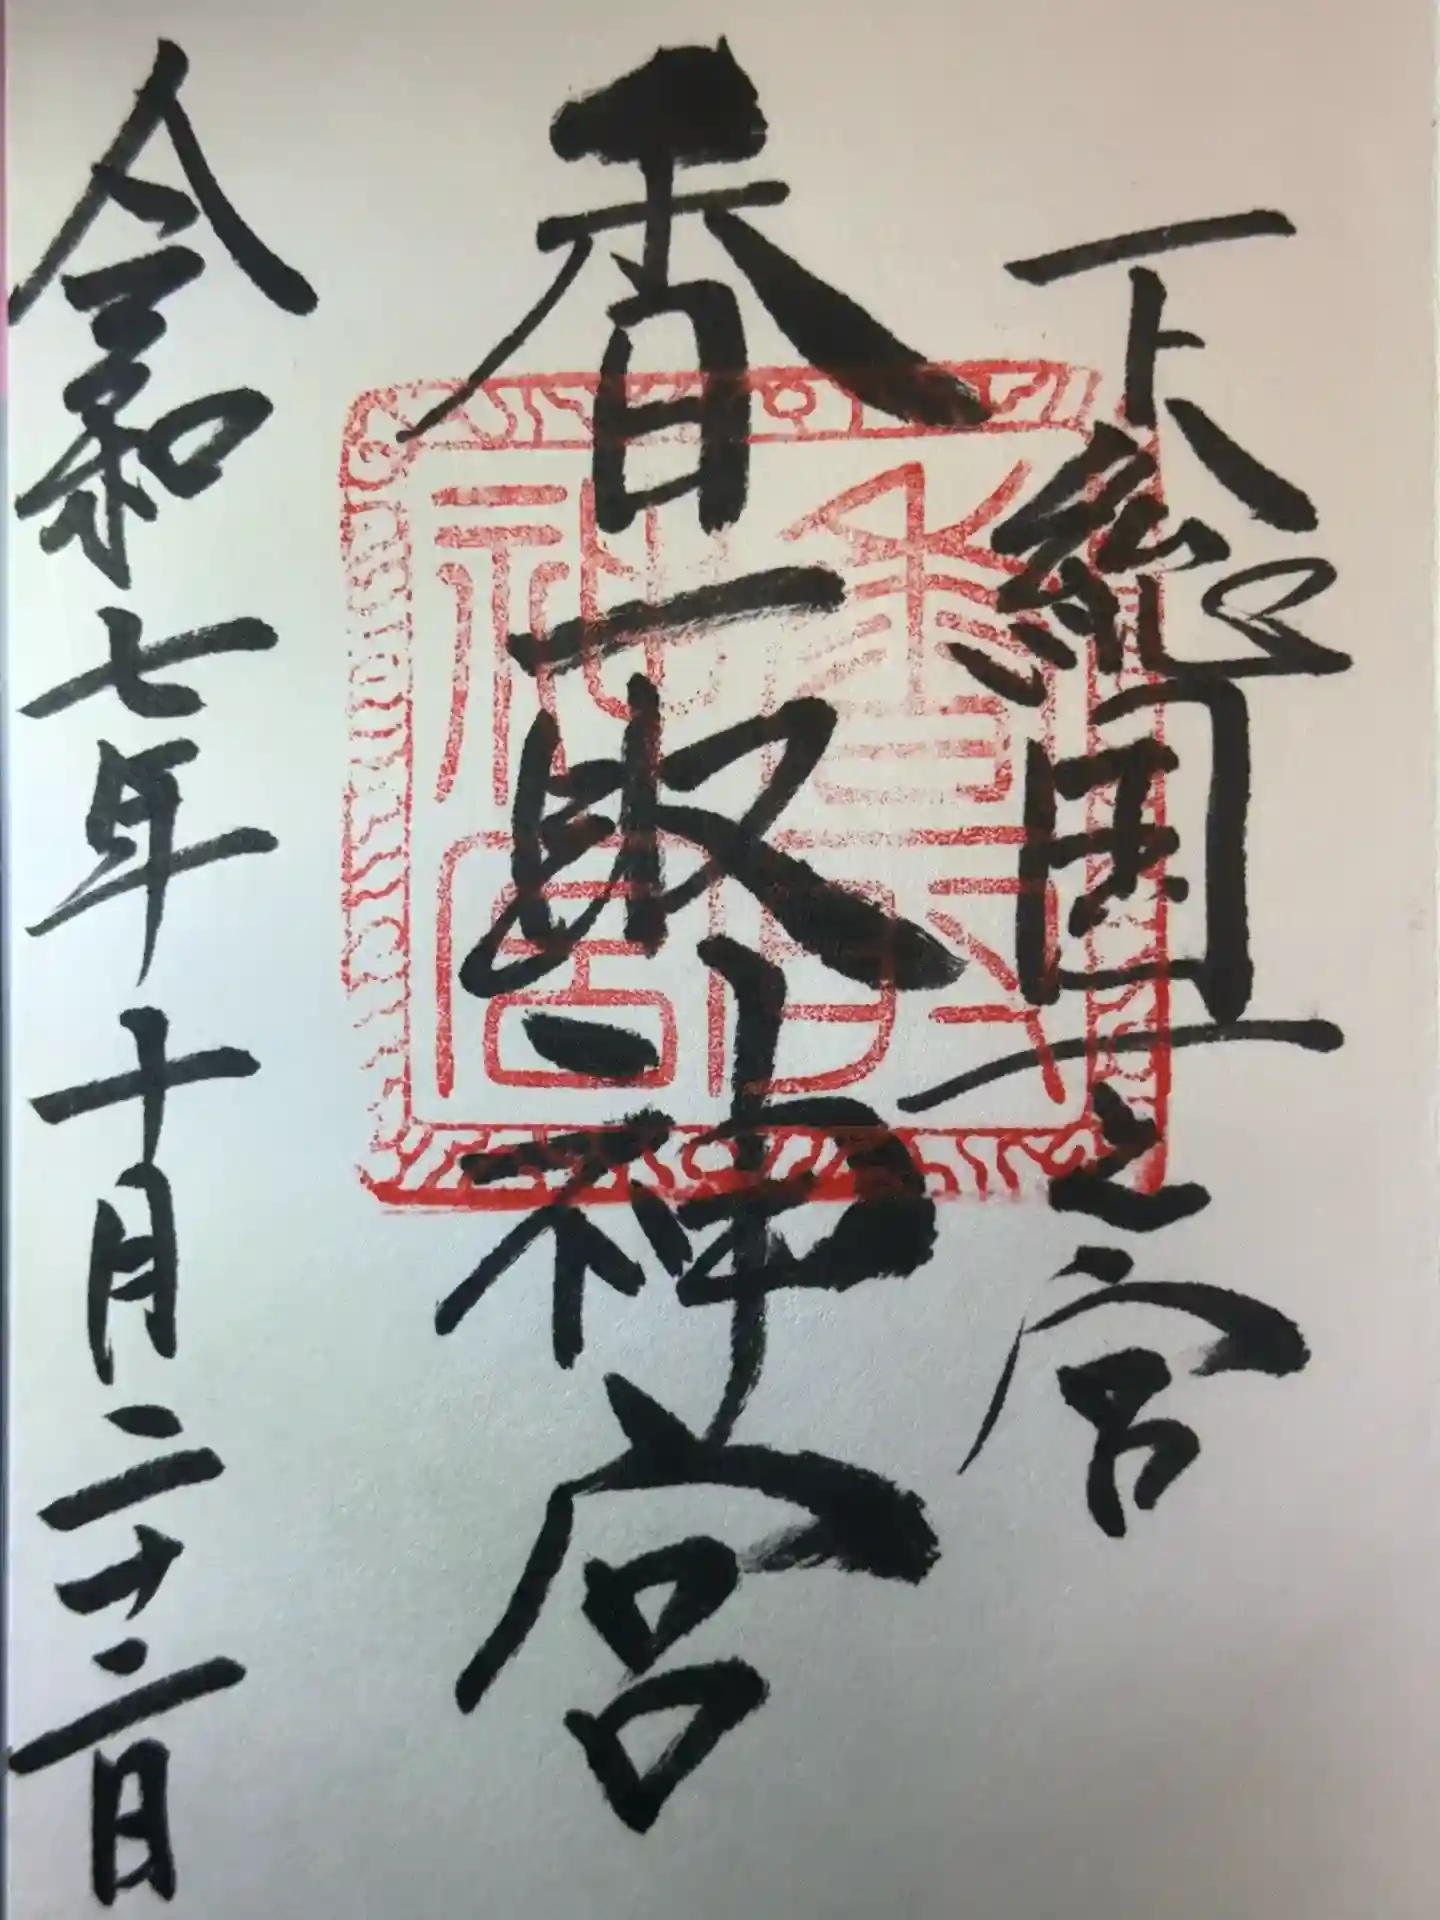 下総国一之宮
香取神宮
令和七年十月二十二日
香取神宮